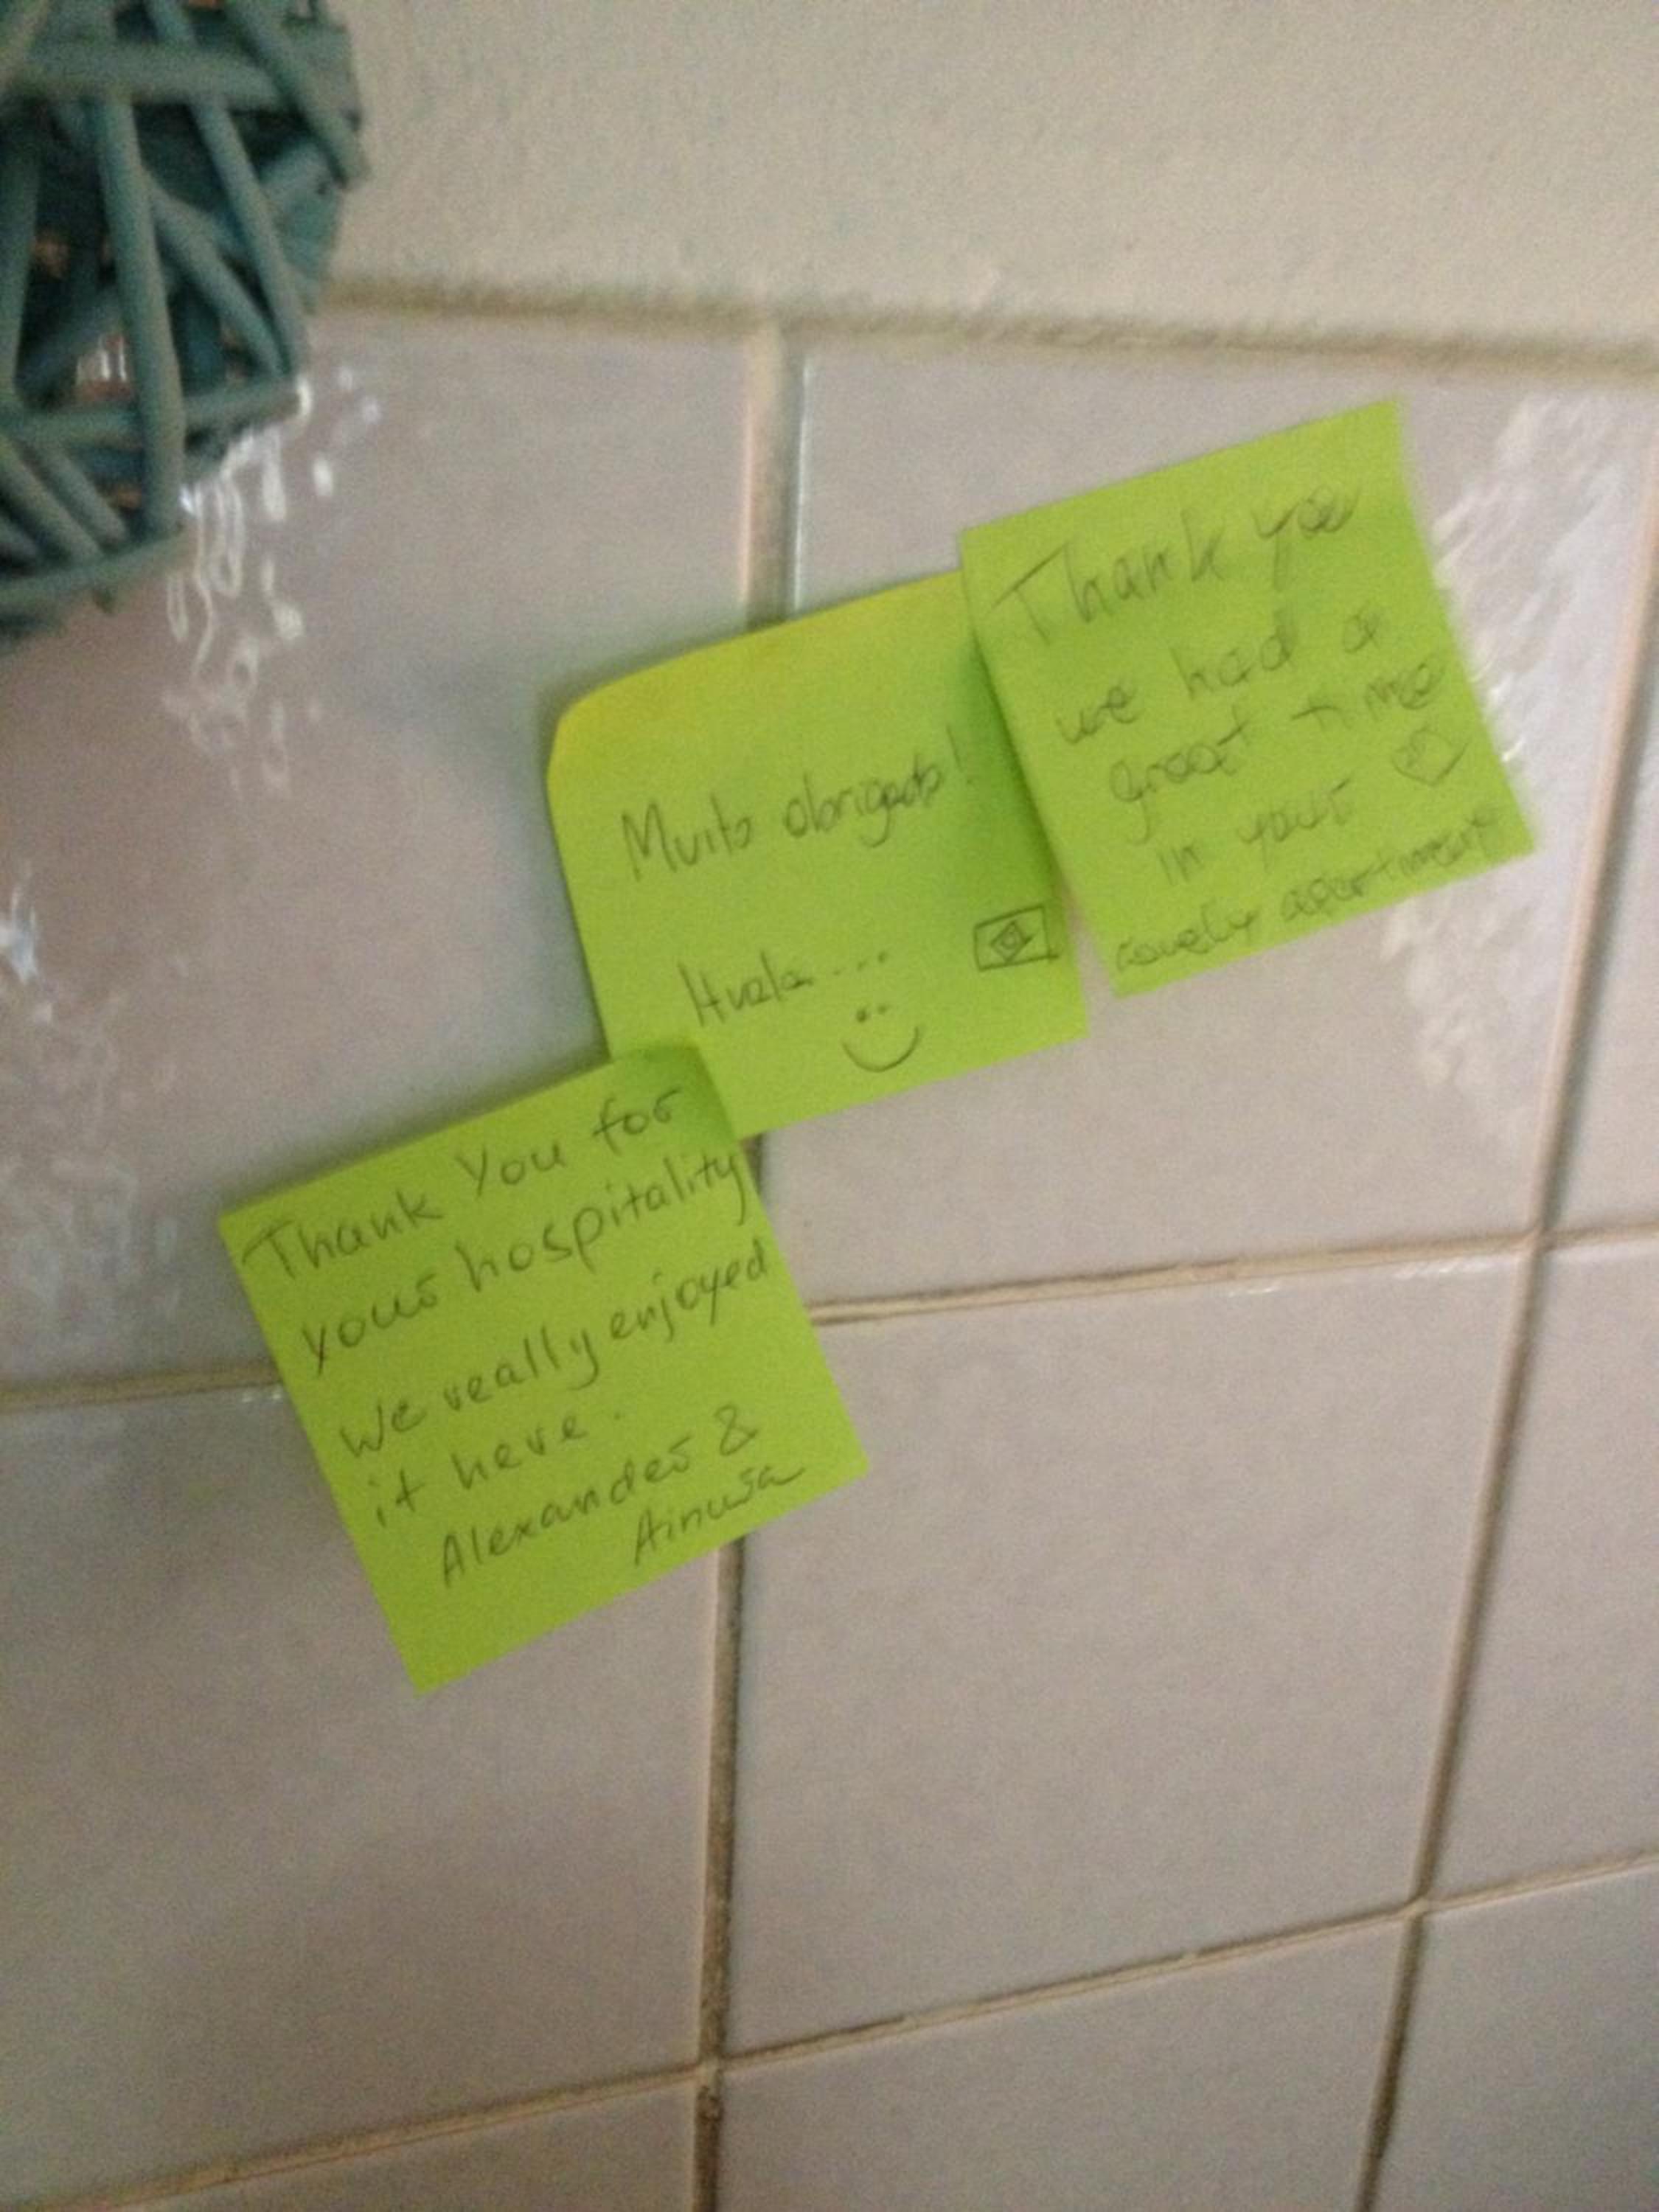 Thank you
we had a
great time
in your
lovely apartment
Muito obrigado!
Hvala...
Thank You for
your hospitality
We really enjoyed
it here.
Alexander &
Ainura